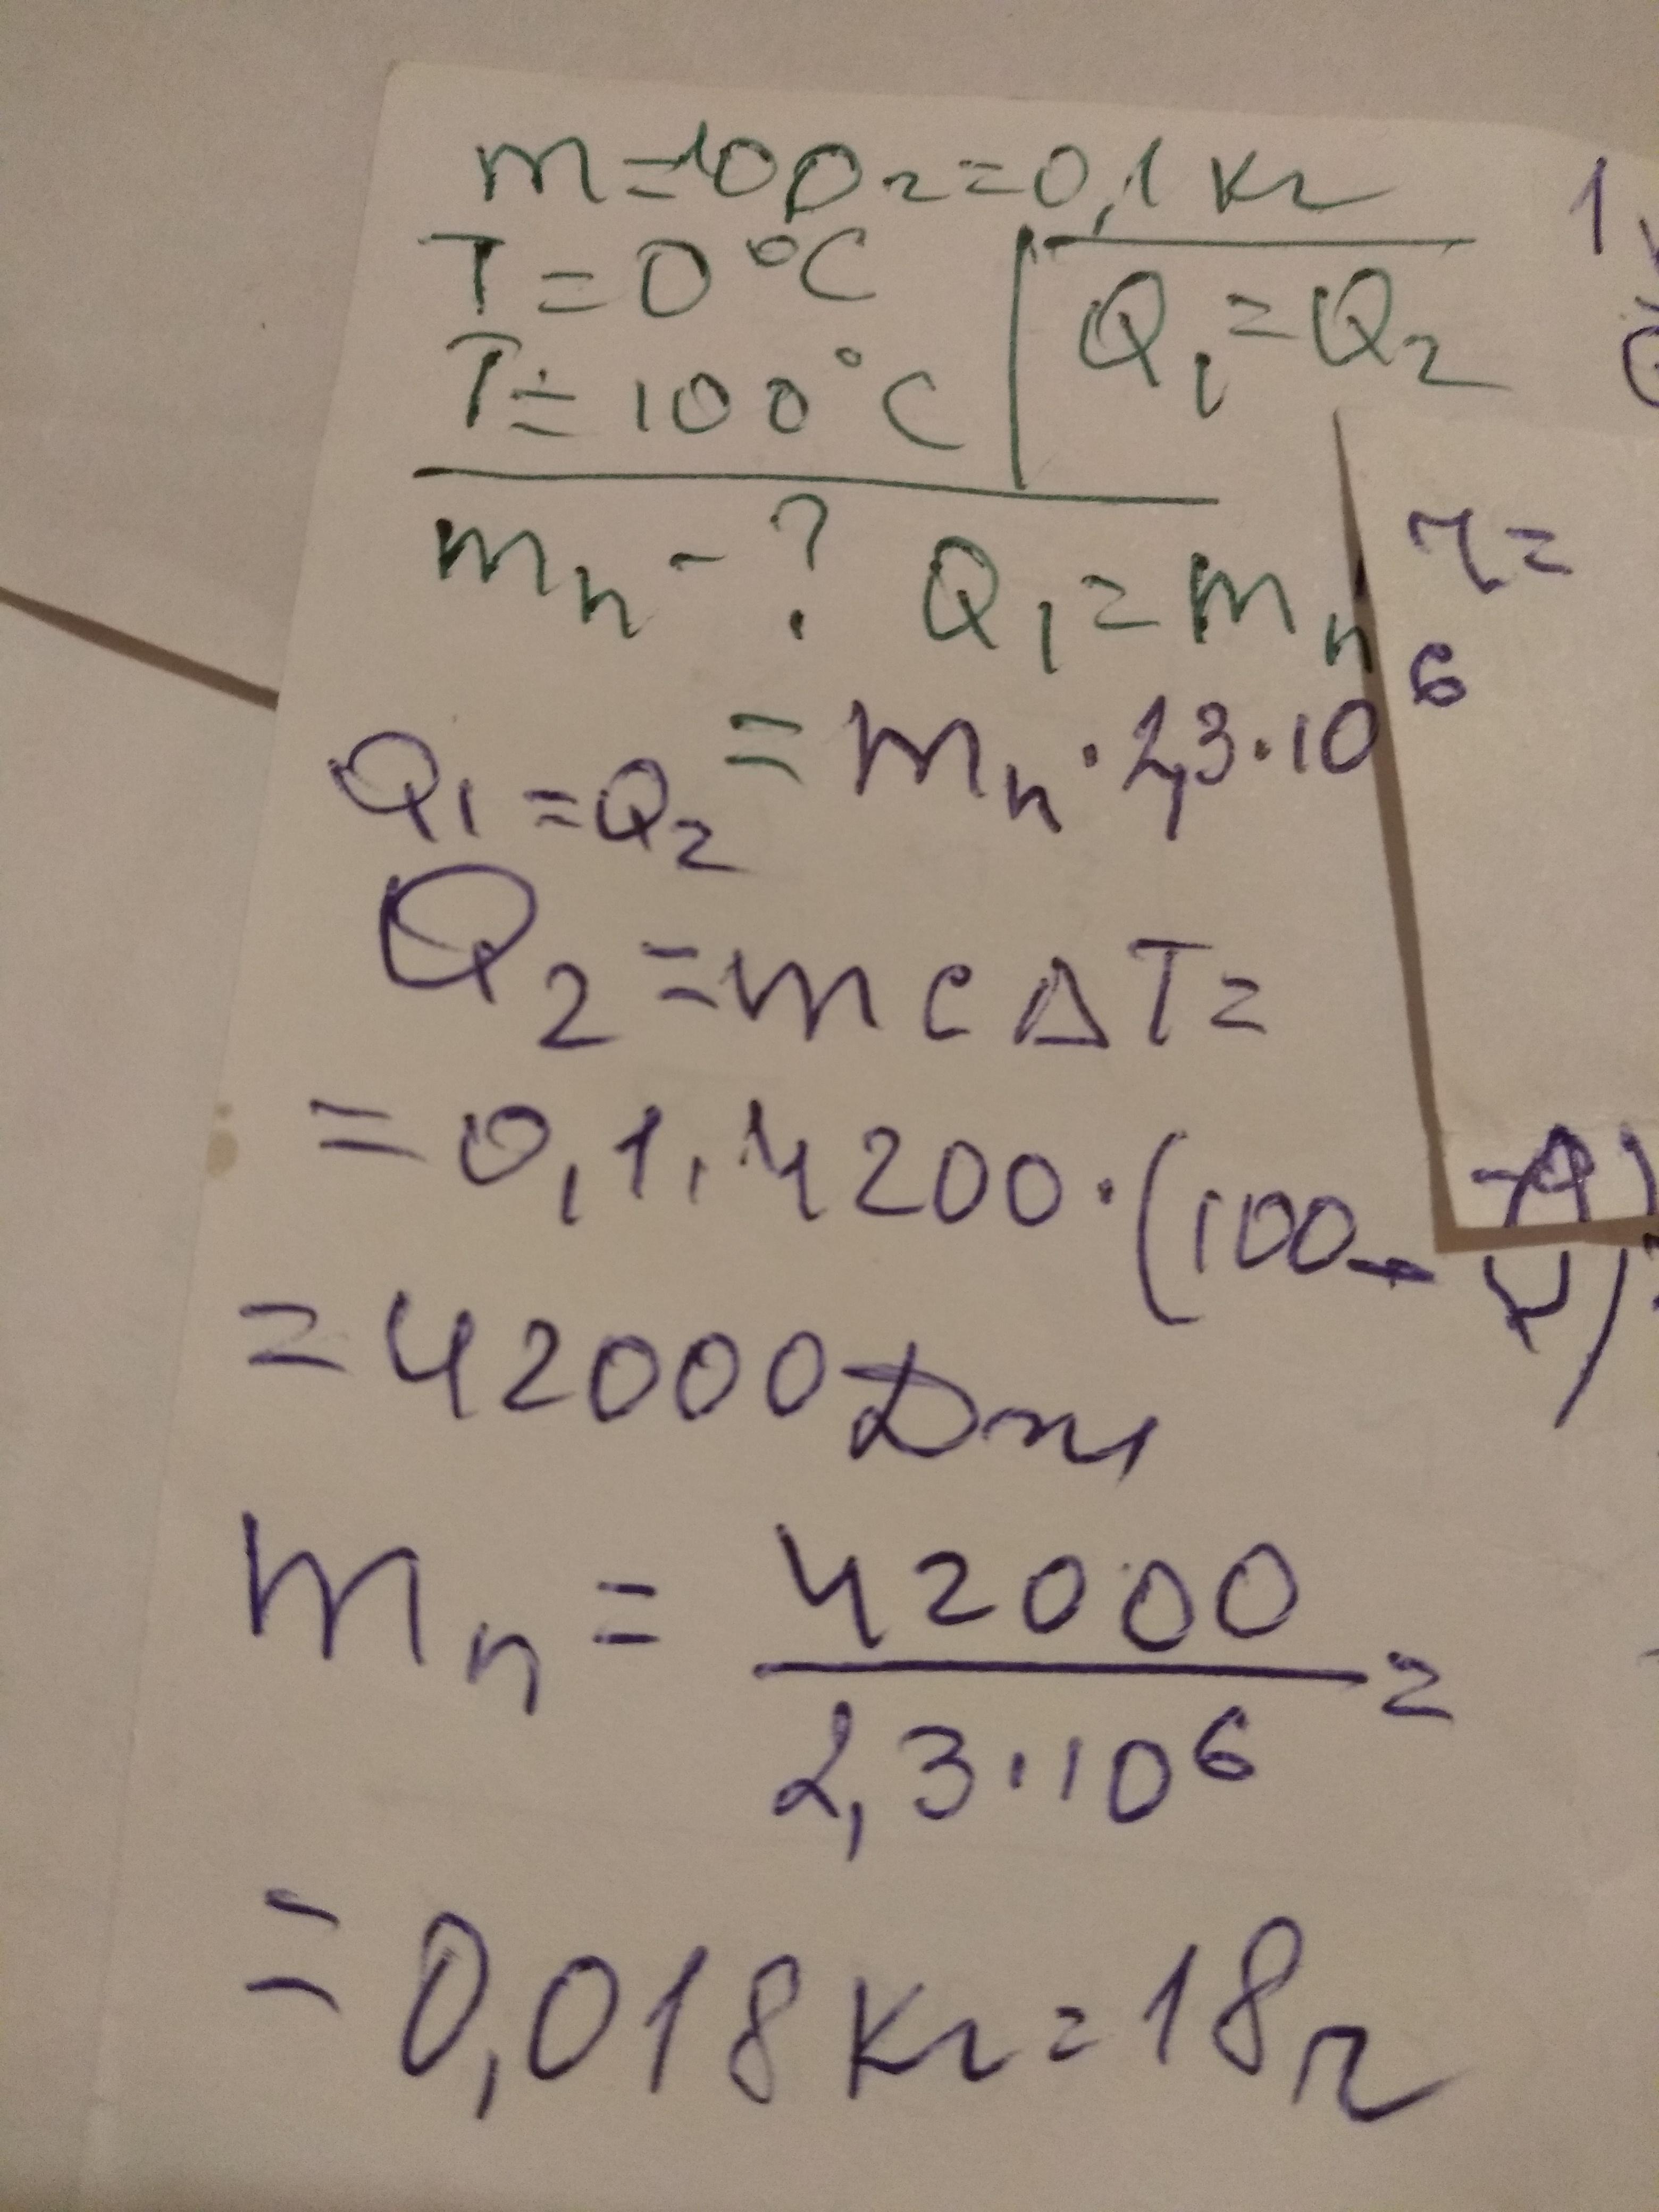 m=100г=0,1 кг
T=0°C
T=100°C
Q₁=Q₂
mₙ-? Q₁=mₙ r=
=mₙ·2,3·10⁶
Q₁=Q₂
Q₂=mcΔT=
=0,1·4200·(100-
=42000Дж
mₙ=42000/2,3·10⁶=
=0,018кг=18г